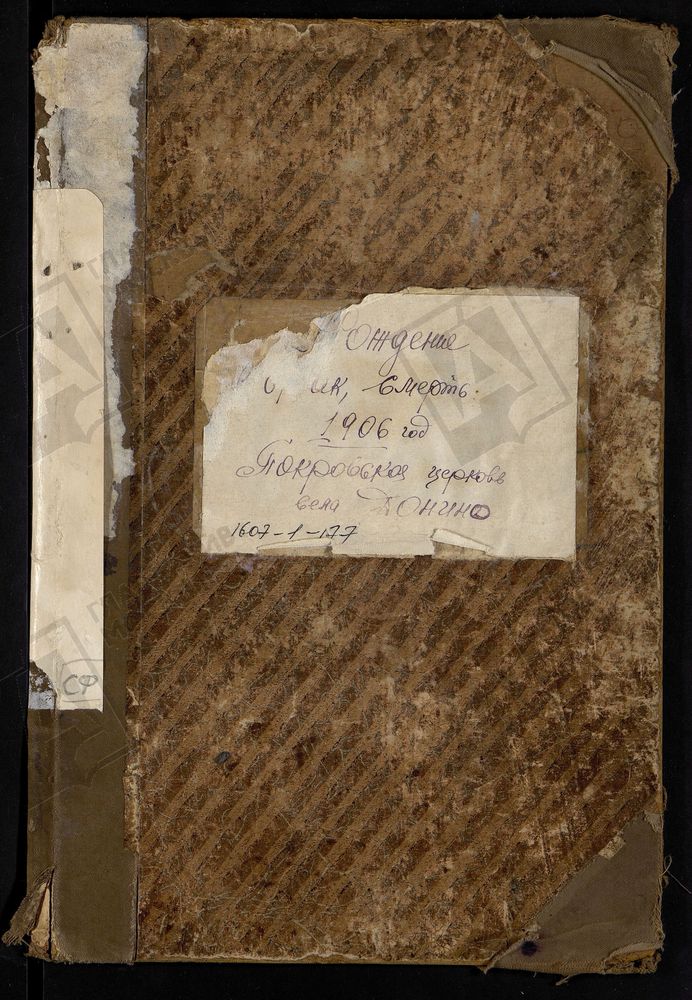 Рождение
брак, смерть.
1906 год
Покровская церковь
села Донино
1607-1-177
СФ